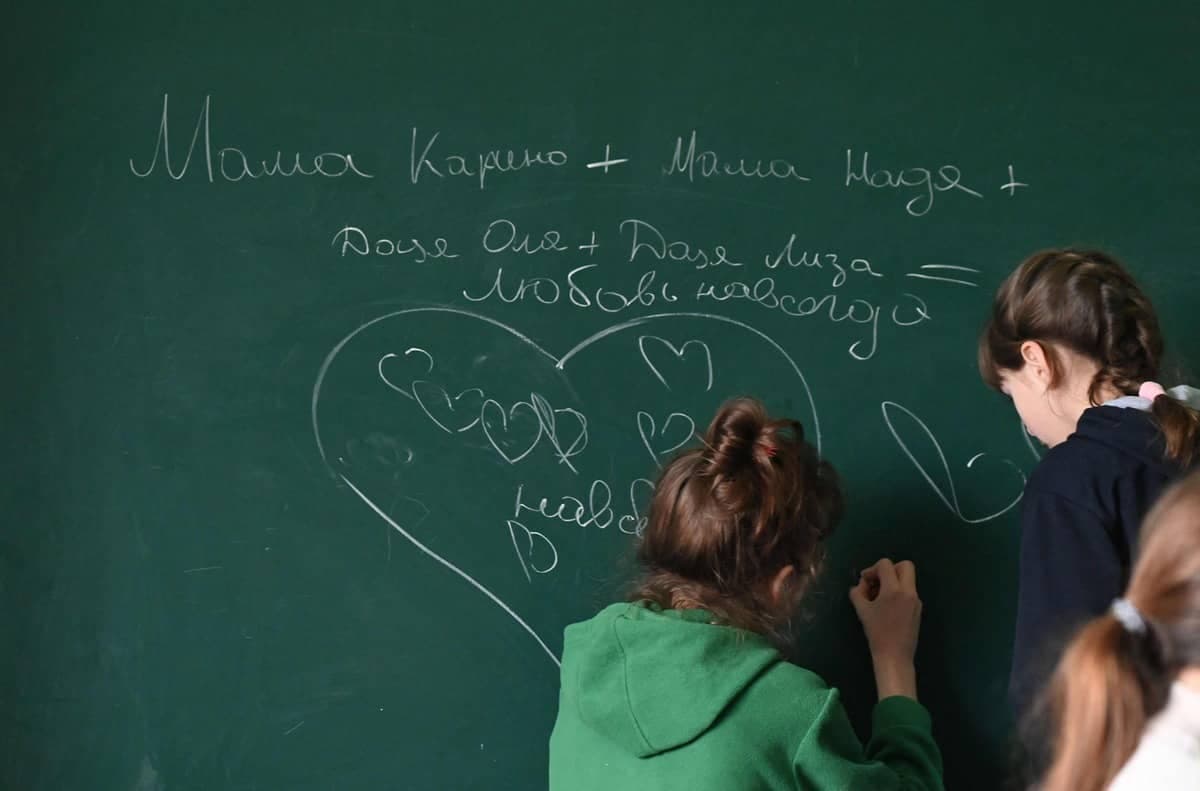 Мама Карино + Мама Надя +
Доця Оля + Доця Лиза =
Любовь навсегда
навсе